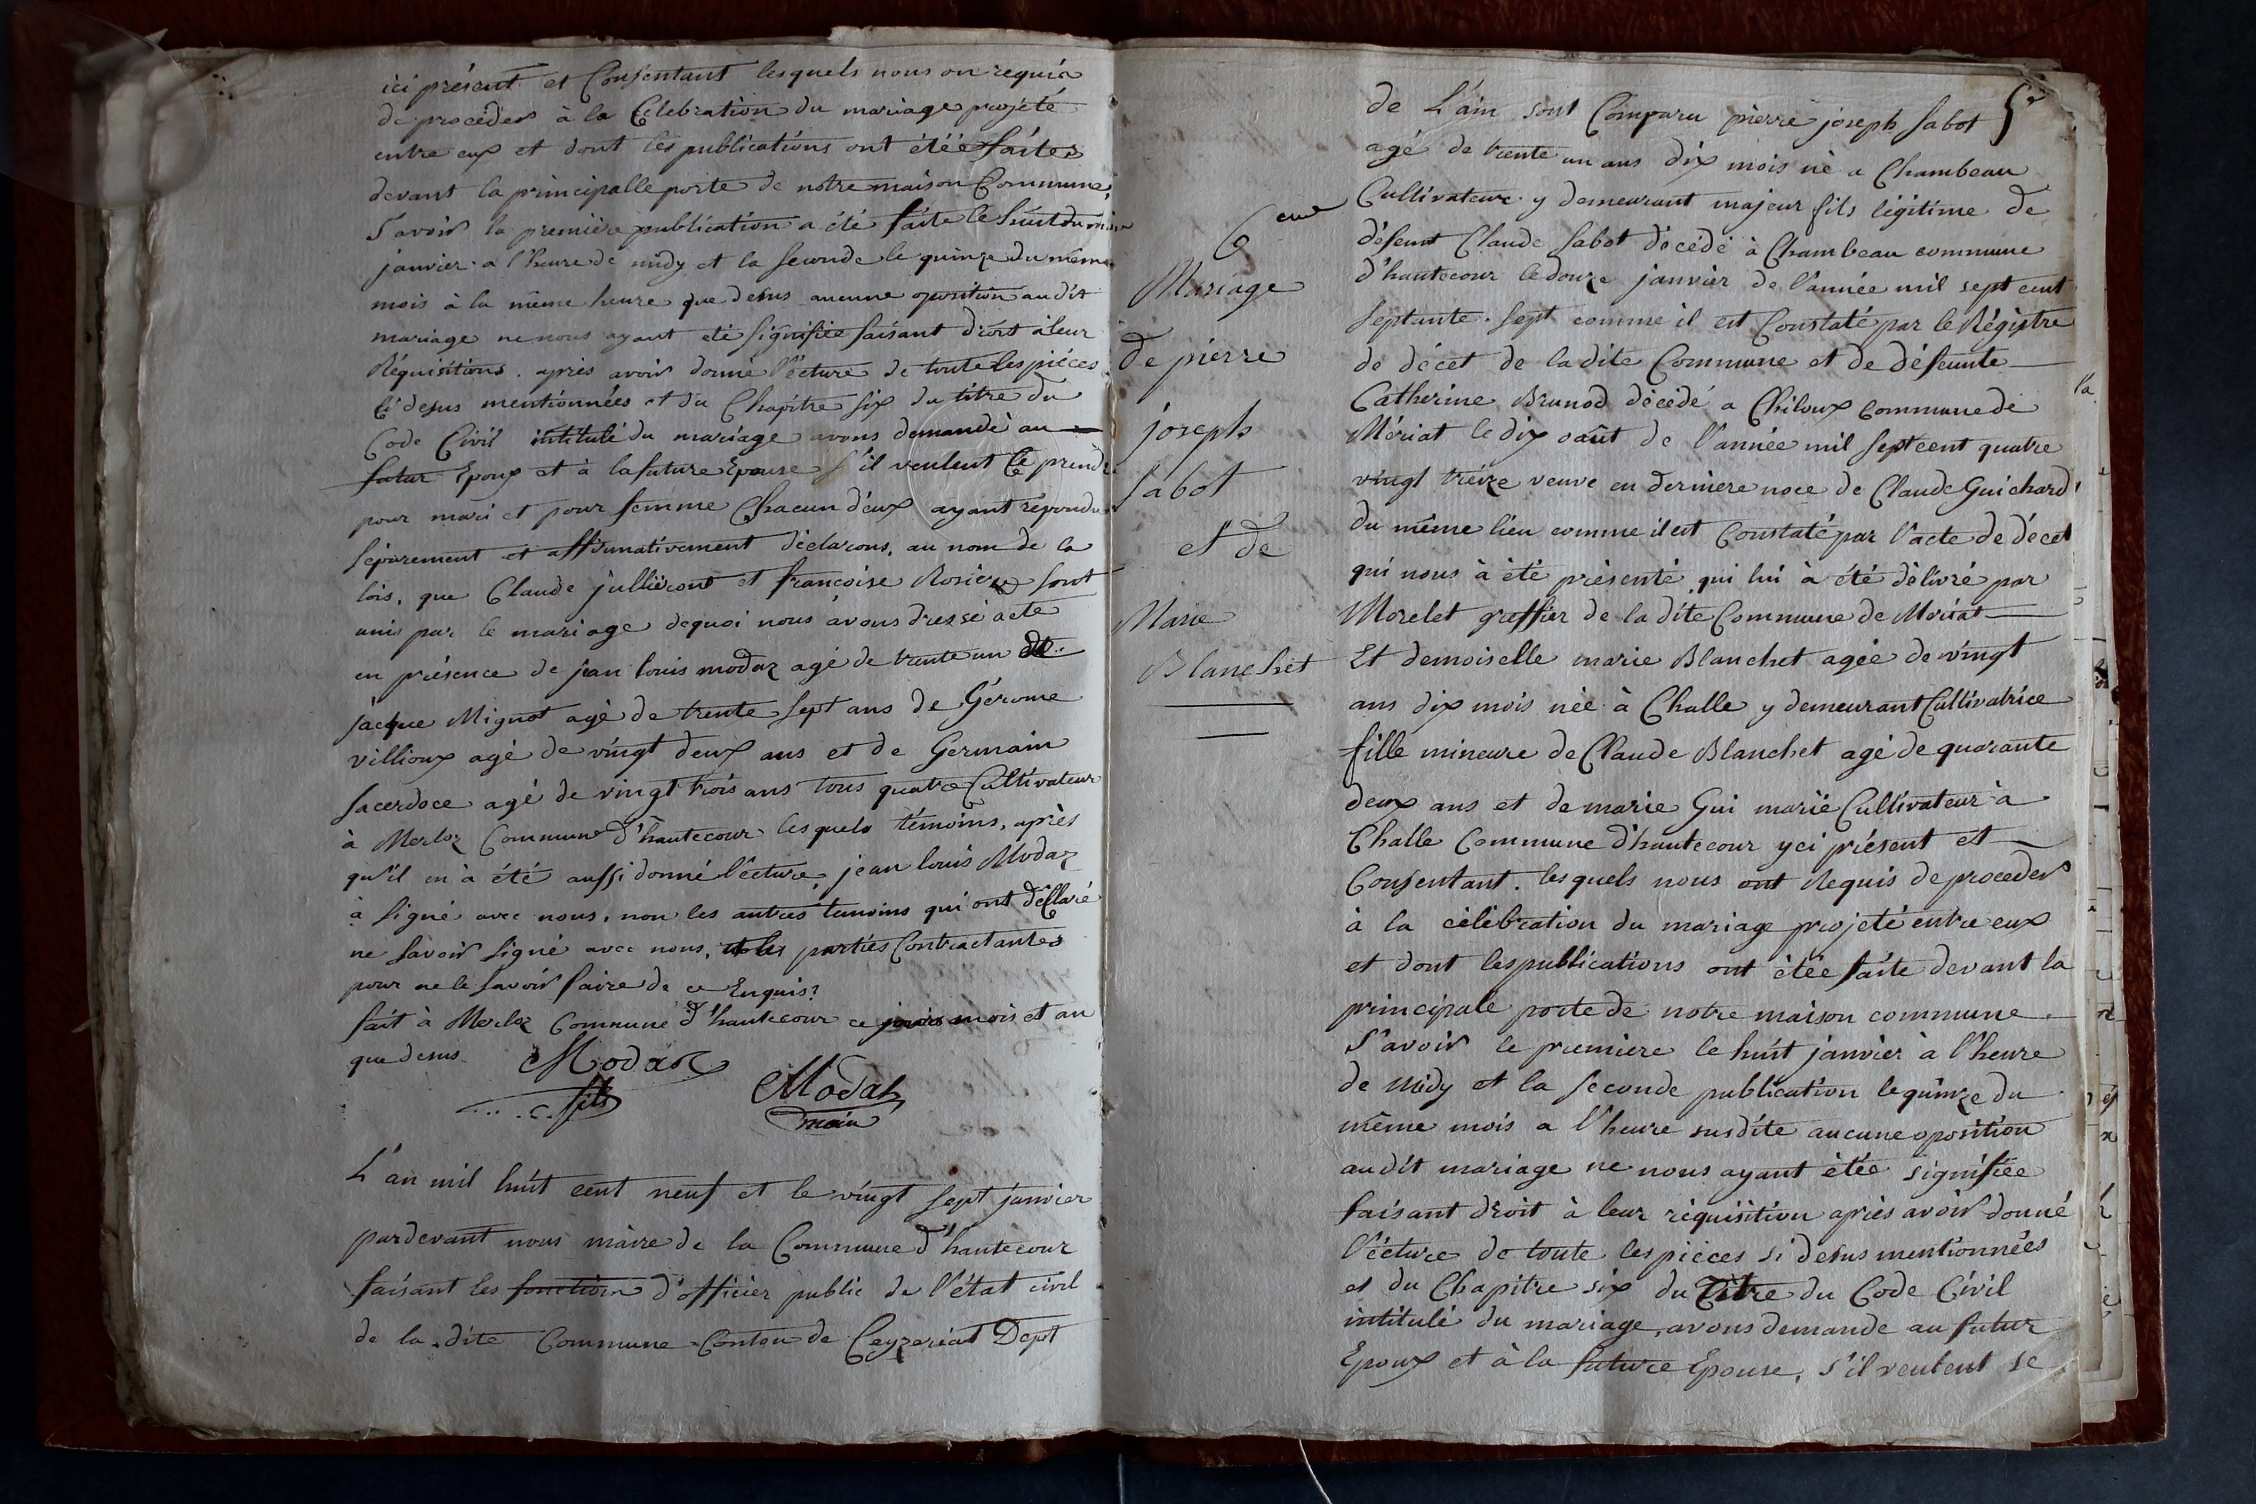 ici présent et Consentant lesquels nous on requis
de procéder à la Célébration du mariage projeté
entre eux et dont les publications ont étéé faites
devant la principalle porte de notre maison Commune,
S'avoir la première publication a été faite le huit du mois
janvier a l'heure de midy et la seconde le quinze du même
mois à la même heure que desus aucune oposition audit
mariage ne nous ayant eté signifiée faisant droit à leur
Réquisitions. après avoir donné l'écture de toute les piéces
Ci desus mentionnées et du Chapitre six du titre du
Code Civil intitulé du mariage avons demandé au
futur Epoux et à la future Epouse s'il veulent Ce prendre
pour mari et pour femme Chacun d'éux ayant repondu
séparement et affirmativement déclarons, au nom de la
lois, que Claude jullieront et françoise Rosier sont
unis par le mariage dequoi nous avons dressé acte
en présence de jean louis modaz agé de trente un
jacque Mignot agé de trente sept ans de Gérome
villioux agé de vingt deux ans et de Germain
sacerdoce agé de vingt trois ans tous quatre Cultivateur
à Merloz Commune d'hautecour lesquels témoins, après
qu'il en à été aussi donné l'écture, jean louis Modaz
à signé avec nous, non les autres temoins qui ont déClaré
ne savoir signé avec nous, et les parties Contractantes
pour ne le savoir faire de ce Enquis?
fait à Merloz Commune d'hautecour ce jours mois et an
que desus
Modaz
fils
Modaz
maire
L'an mil huit cent neuf et le vingt sept janvier
pardevant nous maire de la Commune d'hautecour
faisant les fonction d'officier public de l'état civil
de la dite Commune Conton de Ceyzeriat Dept
5e
6eme
Mariage
de pierre
joseph
sabot
et de
Marie
Blanchet
de L'ain sont Comparu pierre joseph sabot
agé de trente un ans dix mois né a Chambeau
Cultivateur y demeurant majeur fils légitime de
défeunt Claude sabot décédé à Chambeau commune
d'hautecour le douze janvier de l'année mil sept cent
septante-sept comme il est Constaté par le Régistre
de décet de la dite Commune et de défeunte
Catherine Brunod décédé a Chiloux Commune de
Mériat le dix oaût de l'année mil sept cent quatre
vingt tréize veuve en derniere noce de Claude Guichard
du même lieu comme il est Constaté par l'acte de décet
qui nous à été présenté qui lui à été délivré par
Morelet greffier de la dite Commune de Mériat
Et demoiselle marie Blanchet agée de vingt
ans dix mois née à Challe y demeurant Cultivatrice
fille mineure de Claude Blanchet agé de quarante
deux ans et de marie Gui marié Cultivateur à
Challe Commune d'hautecour yci présent et
Consentant. lesquels nous ont Requis de proceder
à la célébration du mariage projeté entre eux
et dont les publications ont étée faite devant la
principale porte de notre maison commune
S'avoir le premiere le huit janvier à l'heure
de midy et la seconde publication le quinze du
même mois a l'heure susdite aucune oposition
audit mariage ne nous ayant étée signifiée
faisant droit à leur réquisition après avoir donné
l'écture de toute les piéces si desus mentionnées
et du Chapitre six du Titre du Code Civil
intitulé du mariage, avons demande au futur
Epoux et à la future Epouse, s'il veulent se